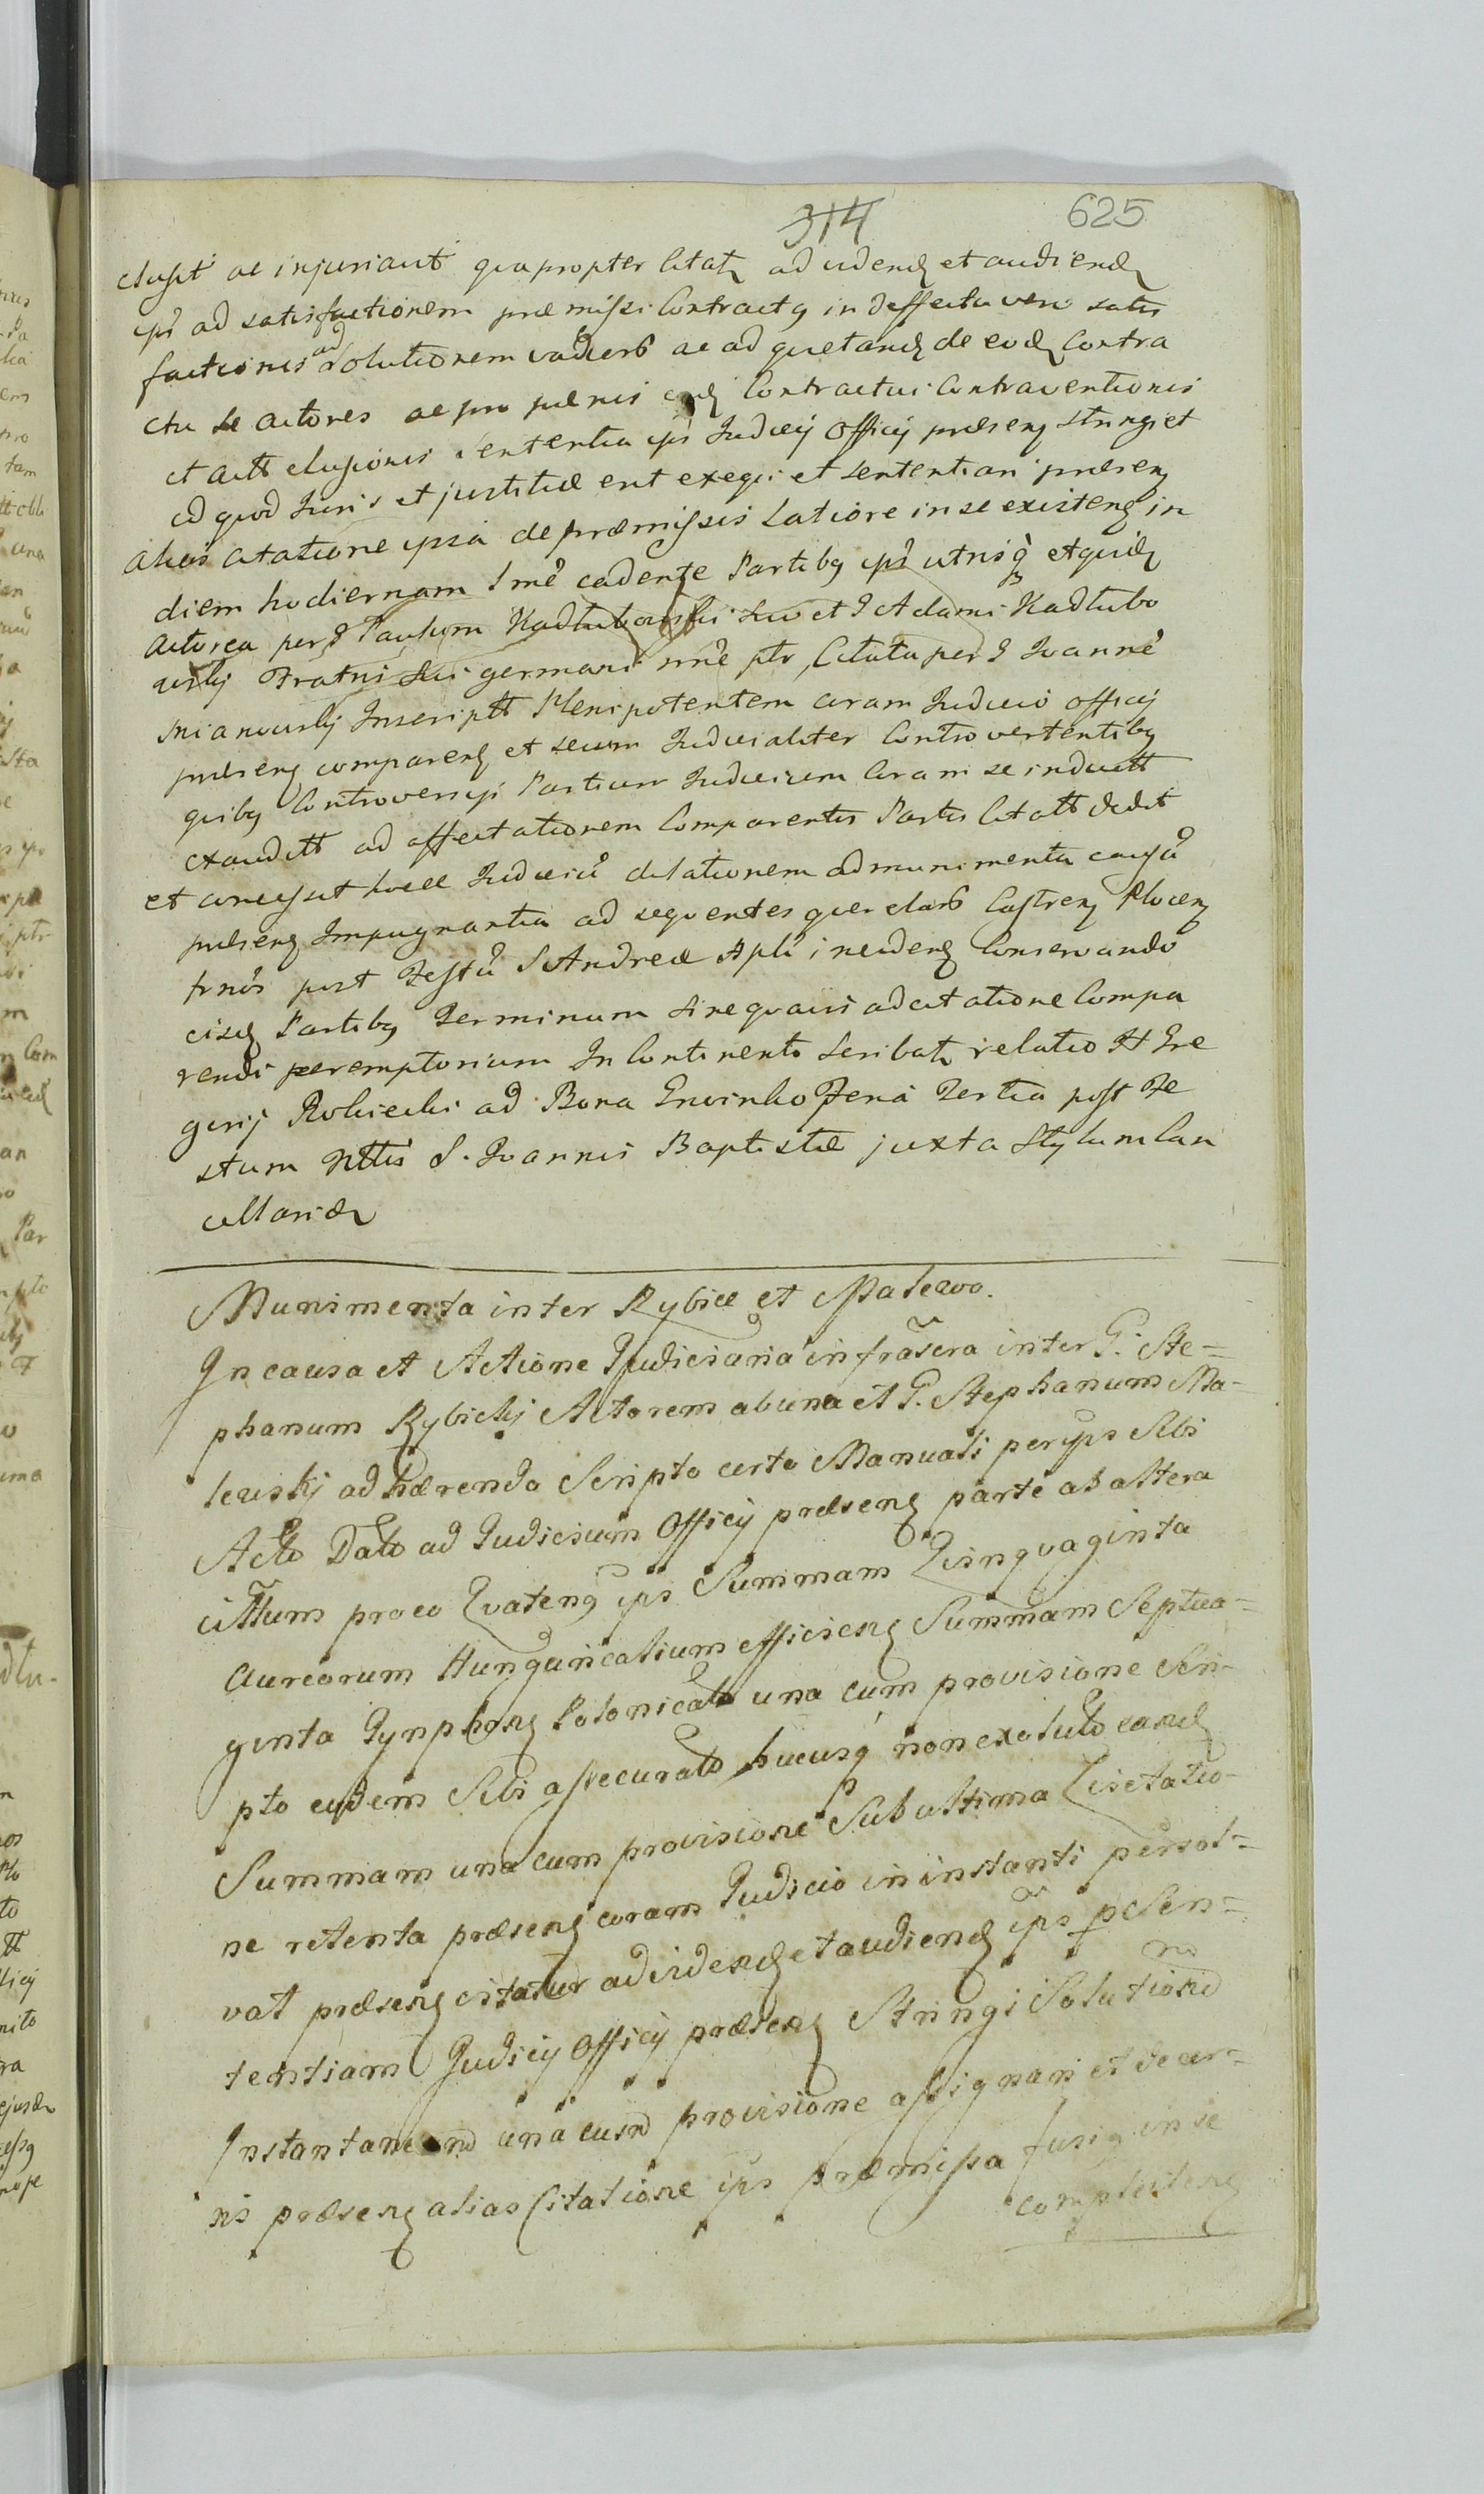 314 625
clusit ac injuriavit quapropter Citatz ad videndz et audiendz
ips ad satisfactionem præmissi Contractg in deffectu vero satis
factionis ad Solutionem vadiorb ac ad quietandz de eodz Contra
ctu se actores ac pro pænis Contractui Contraventionis
et actt elusionis sententia ips Judicij Officij præsenz stringi et
id quod Juris et justitiæ erit exequi et sententiari præsenz
alias citatione ipsa de præmissis Latiore in se existenz in
diem hodiernam cadente Partibg ips utrisq et quidz
Actorea per G Paulum Kadlubowski suo et G Adami Kadlubo
wskj Fratris sui germani nne Citata per G Joanne
Mianowskj Inscriptt Plenipotentem coram Judicio officij
præsenz comparenz et secum Judicialiter Controvertentibg
quibg Controversijs Partium Judicium Coram se inductt
exauditt ad affectationem Comparentis Partis Citatt dedit
et concessit hocce Judiciu dilationem ad munimenta causa
præsenz Impugnantia ad sequentes querelarb Castrenz Plocenz
trnos post Festu S Andreæ Apli incidenz Conservando
eisdz Partibg Terminum sine quavis adcitatione Compa
rendi peremptorium In Continenti scribatz relatio H Gre
gorij Robiecki ad Bona Gnoinko Feria Tertia post Fe
stum Nttis S. Joannis Baptistæ juxta Stylum Can
cellariæ
Munimenta inter Rybice et Malewo.
In causa et Actione Judiciaria infrascra inter G: Ste=
phanum Rybickj Actorem ab una et G. Stephanum Ma-
lewskj adhærendo Scripto certo Manuali per ips Sibi
Acto Dato ad Judicium Officij præsenz parte ab altera
cittum pro eo Qvateng ips Summam Qvinqvaginta
Aureorum Hungaricalium efficienz Summam Septua=
ginta Tynphonz Polonicalb una cum provisione Scri-
pto ejusdem Sibi assecurato hucusq non exoluto eandz
Summam una cum provisione Sub ultima Qvietatio-
ne retenta præsenz coram Judicio in instanti persol=
vat præsenz citatur ad videndz et audiendz ips p Sen=
tentiam Judicij Officij præsenz Stringi Solutione
Instantanea una cum provisione assignari et decer=
ni præsenz alias Citatione ips præmissa fusig in se
complectenz